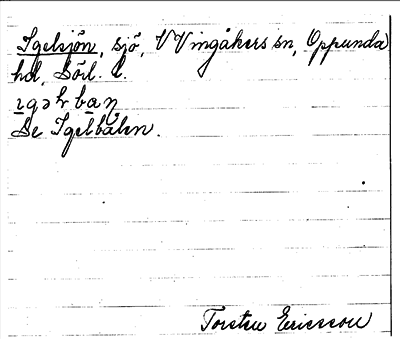 Igelsjön, sjö, V Vingåkers sn, Oppunda
hd, Sörl. l.
Se Igelbålen.
Torsten Ericsson